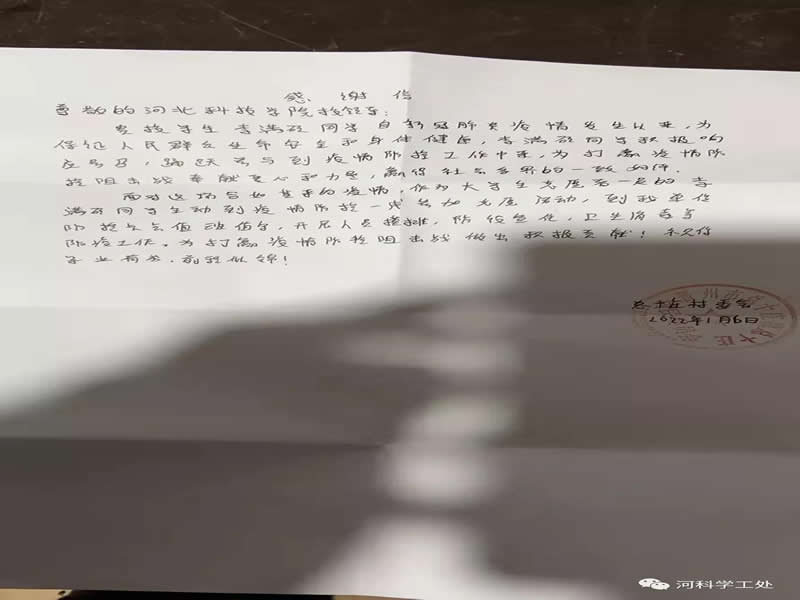 感谢信
尊敬的河北科技学院校领导:
贵校学生李满硕同学自新冠肺炎疫情发生以来,为
保证人民群众生命安全和身体健康,李满硕同学积极响
应号召,踊跃参与到疫情防控工作中来,为打赢疫情防
控阻击战奉献爱心和力量,赢得社会各界的一致好评。
面对这场突如其来的疫情,作为大学生志愿者一员的李
满硕同学主动到疫情防控一线参加志愿活动,到我单位
防控卡点值班值守,开展人员摸排,防控宣传,卫生消毒等
防疫工作。为打赢疫情防控阻击战做出积极贡献!祝
学业有成,前程似锦!
村委会
2022年1月6日
河科学工处